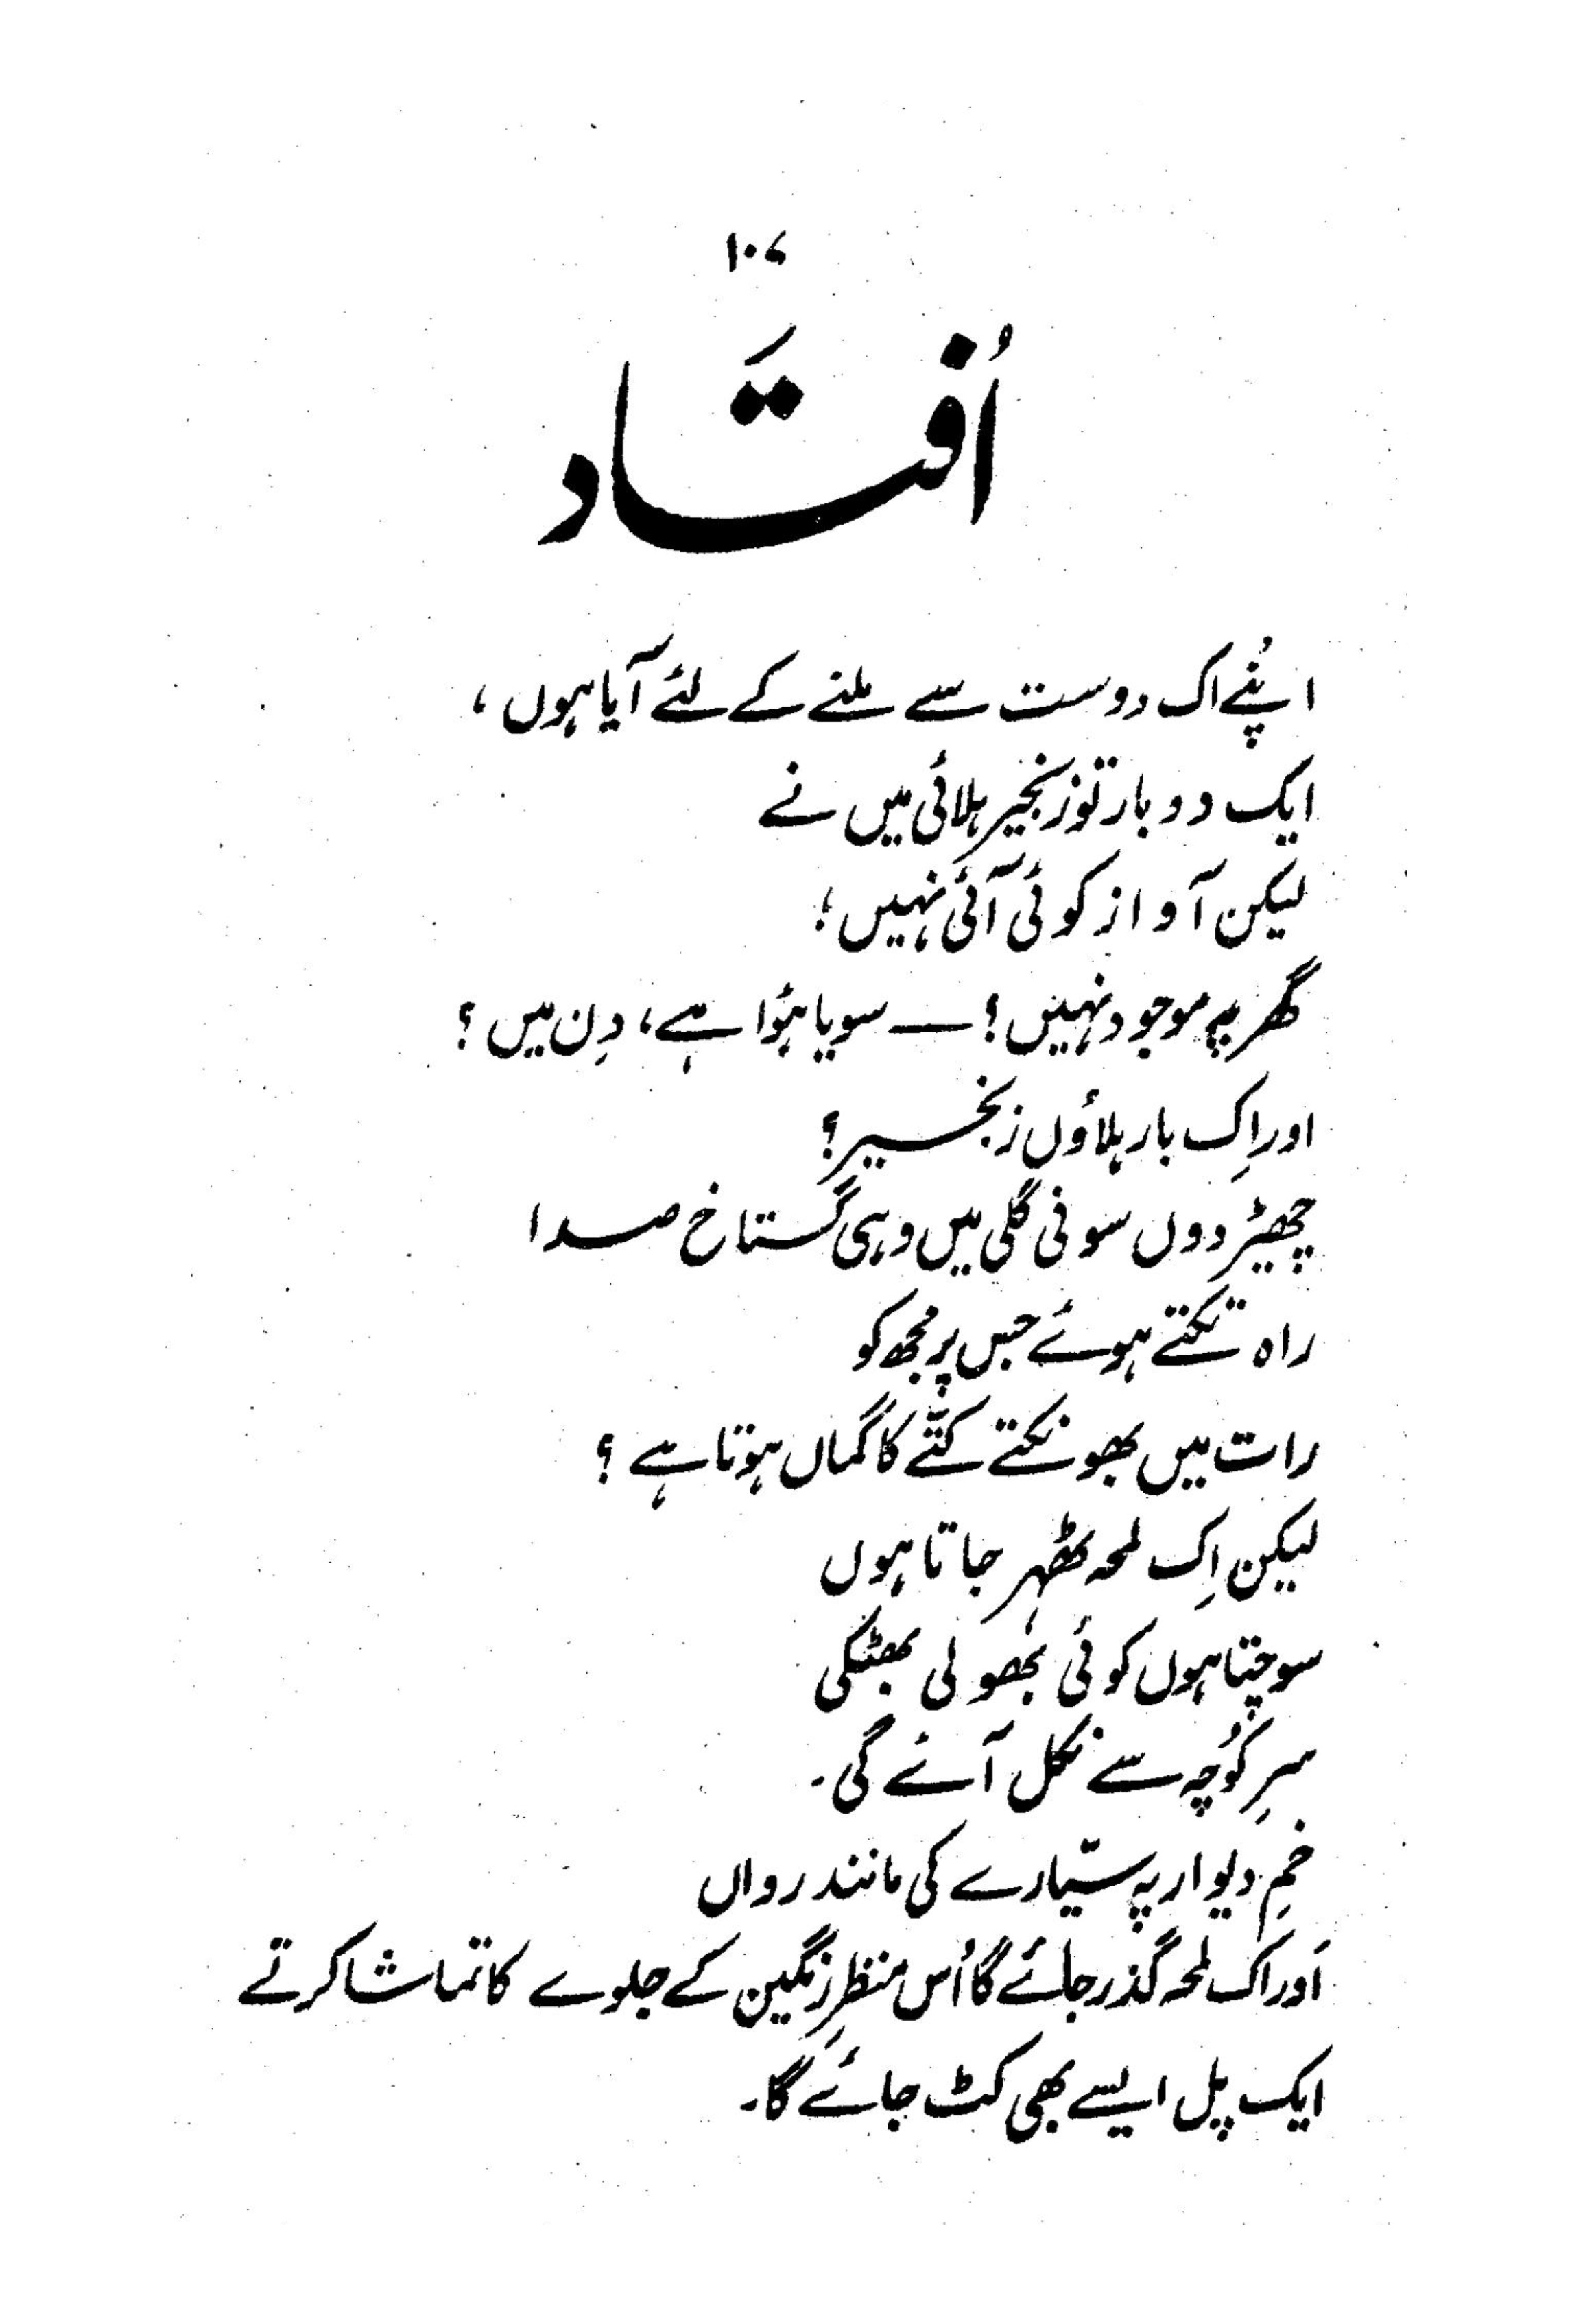 ۱۰۷
اُفتَاد
اپنُے اک دوست سے ملنے کے لئے آیا ہوں ،
ایک دو بار تو زنجیر ہلائی میں نے
لیکن آواز کوئی آئی نہیں ؛
گھر پہ موجود نہیں ؟ — سویا ہؤا ہے ، دِن میں ؟
اور اِک بار ہلاؤں زنجیر ؟
چھیڑ دوں سونی گلی میں وہی گستاخ صدا
راہ تکتے ہوئے جس پر مجھ کو
رات میں بھونکتے کتّے کا گماں ہوتا ہے ؟
لیکن اِک لمحہ ٹھہر جاتا ہوں
سوچتا ہوں کوئی بھُولی بھٹکی
سرِ کُوچہ سے نکل آئے گی ۔
خمِ دیوار پہ سیّارے کی مانند رواں
اَور اک لمحہ گذر جائے گا اُس منظرِ رنگین کے جلوے کا تماشا کرتے
ایک پل ایسے بھی کٹ جائے گا ۔